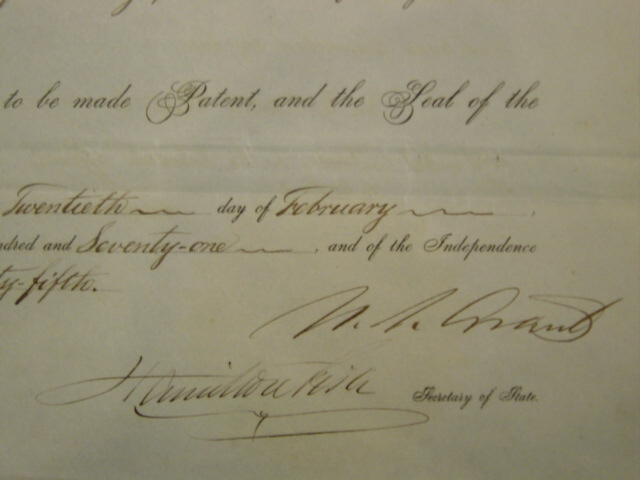 to be made Patent, and the Seal of the
Twentieth day of February
ndred and Seventy-one, and of the Independence
ty-fifth.
U. S. Grant
Hamilton Fish
Secretary of State.